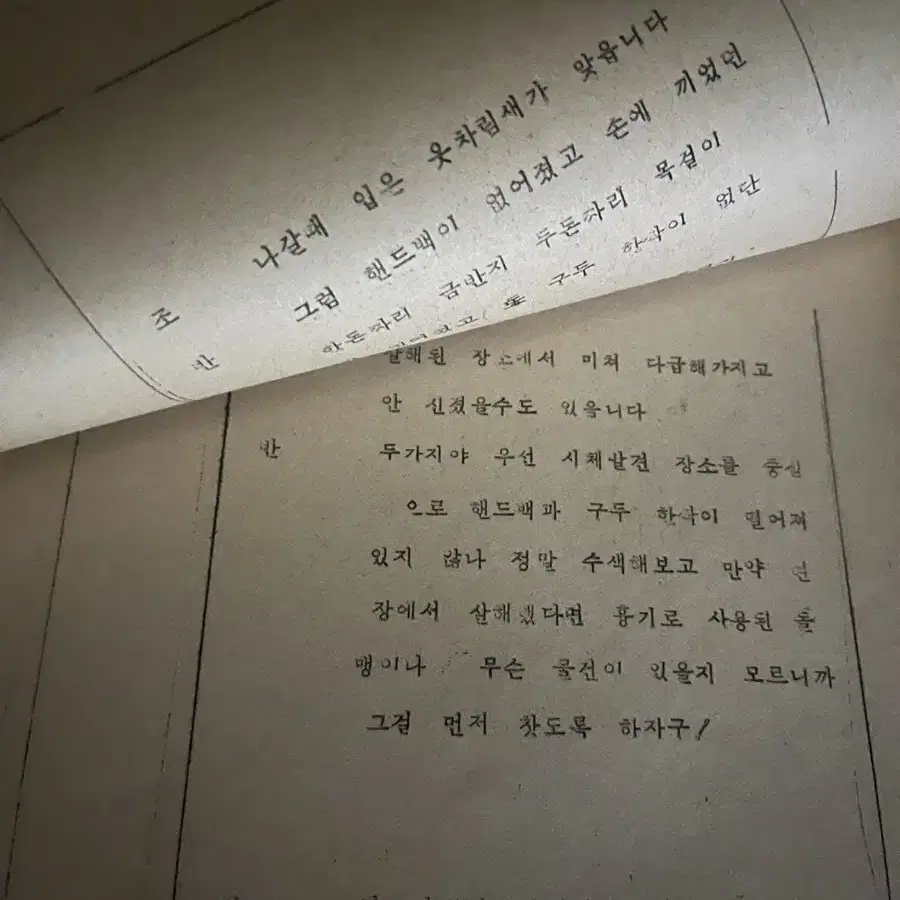 나갈때 입은 옷차림새가 맞읍니다
조 그럼 핸드백이 없어졌고 손에 끼었던
반 금반지 두돈짜리 목걸이
구두 한짝이 없단
살해된 장소에서 미쳐 다급해가지고
안 신겼을수도 있읍니다
반 두가지야 우선 시체발견 장소를 중심
으로 핸드백과 구두 한짝이 떨어져
있지 않나 정말 수색해보고 만약 현
장에서 살해됐다면 흉기로 사용된 돌
맹이나 무슨 물건이 있을지 모르니까
그걸 먼저 찾도록 하자구!